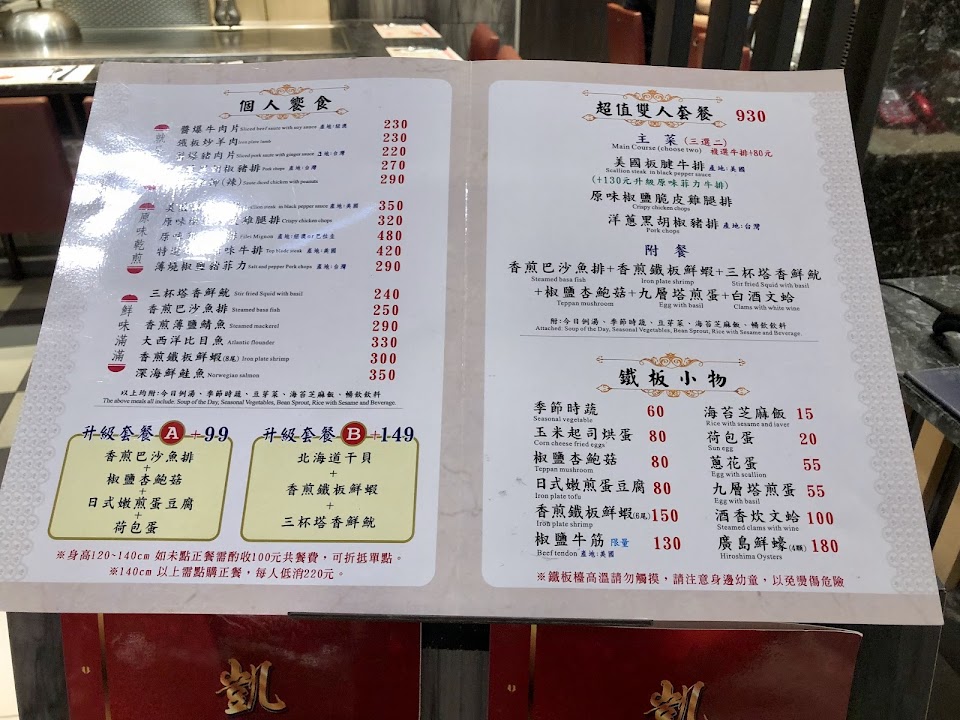 個人饗食
醬爆牛肉片 Sliced beef sauce with soy sauce 產地:紐澳 230
鐵板炒羊肉 Iron plate lamb 230
爆豬肉片 Sliced pork saute with ginger sauce 產地:台灣 220
胡椒豬排 Pork chops 產地:台灣 270
(辣) Saute diced chicken with peanuts 290
原味乾煎
steak in black pepper sauce 產地:美國 350
雞腿排 Crispy chicken chops 320
原味 Filet Mignon 產地:紐澳or巴拉圭 480
特選 味牛排 Top blade steak 產地:美國 420
薄燒椒鹽豬菲力 Salt and pepper Pork chops 產地:台灣 290
鮮味滿滿
三杯塔香鮮魷 Stir fried Squid with basil 240
香煎巴沙魚排 Steamed basa fish 250
香煎薄鹽鯖魚 Steamed mackerel 290
大西洋比目魚 Atlantic flounder 330
香煎鐵板鮮蝦(8尾) Iron plate shrimp 300
深海鮮鮭魚 Norwegian salmon 350
以上均附:今日例湯、季節時蔬、豆芽菜、海苔芝麻飯、暢飲飲料
The above meals all include: Soup of the Day, Seasonal Vegetables, Bean Sprout, Rice with Sesame and Beverage.
升級套餐A+99
香煎巴沙魚排
+
椒鹽杏鮑菇
+
日式嫩煎蛋豆腐
+
荷包蛋
升級套餐B+149
北海道干貝
+
香煎鐵板鮮蝦
+
三杯塔香鮮魷
※身高120~140cm 如未點正餐需酌收100元共餐費，可折抵單點。
※140cm 以上需點購正餐，每人低消220元。
超值雙人套餐 930
主菜(三選二)
Main Course (choose two) 複選牛排+80元
美國板腱牛排 產地:美國
Scallion steak in black pepper sauce
(+130元升級原味菲力牛排)
原味椒鹽脆皮雞腿排
Crispy chicken chops
洋蔥黑胡椒豬排 產地:台灣
Pork chops
附餐
香煎巴沙魚排+香煎鐵板鮮蝦+三杯塔香鮮魷
Steamed basa fish Iron plate shrimp Stir fried Squid with basil
+椒鹽杏鮑菇+九層塔煎蛋+白酒文蛤
Teppan mushroom Egg with basil Clams with white wine
附:今日例湯、季節時蔬、豆芽菜、海苔芝麻飯、暢飲飲料
Attached: Soup of the Day, Seasonal Vegetables, Bean Sprout, Rice with Sesame and Beverage.
鐵板小物
季節時蔬 60
Seasonal vegetable
玉米起司烘蛋 80
Corn cheese fried eggs
椒鹽杏鮑菇 80
Teppan mushroom
日式嫩煎蛋豆腐 80
Iron plate tofu
香煎鐵板鮮蝦(6尾) 150
Iron plate shrimp
椒鹽牛筋 限量 130
Beef tendon 產地:美國
海苔芝麻飯 15
Rice with sesame and laver
荷包蛋 20
Sun egg
蔥花蛋 55
Egg with scallion
九層塔煎蛋 55
Egg with basil
酒香炊文蛤 100
Steamed clams with wine
廣島鮮蠔(4顆) 180
Hiroshima Oysters
※鐵板檯高溫請勿觸摸，請注意身邊幼童，以免燙傷危險
凱
凱